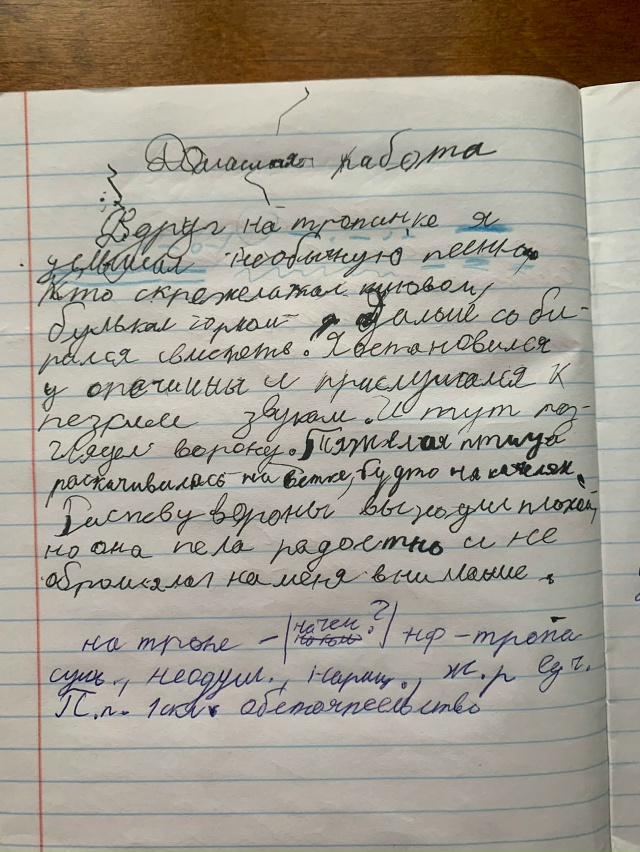 Домашняя работа
Вдруг на тропинке я
услышал необычную песенку
Кто скрежелажал
булькал горлом Дальше соби-
рался свистеть. Я остановился
у опечины и прислушался к
звукам. И тут раз-
глядел ворону. Тяжёлая птица
раскачивалась на ветке, будто на качелях.
Распеву вороны выходил плохой,
но она пела радостно и не
обращала на меня внимание.
на тропе - (на чём?) нф - тропа
сущ., неодуш., нариц., ж.р ед.ч.
П.п. 1скл. обстоятельство